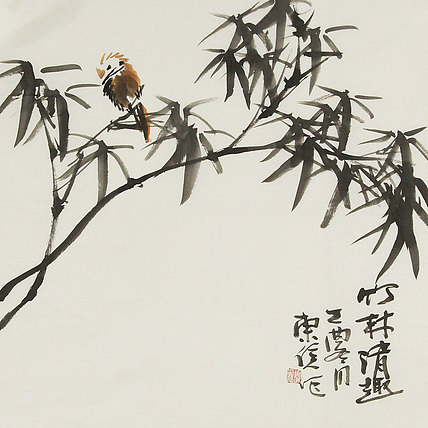 竹林清趣
乙酉冬月
東作